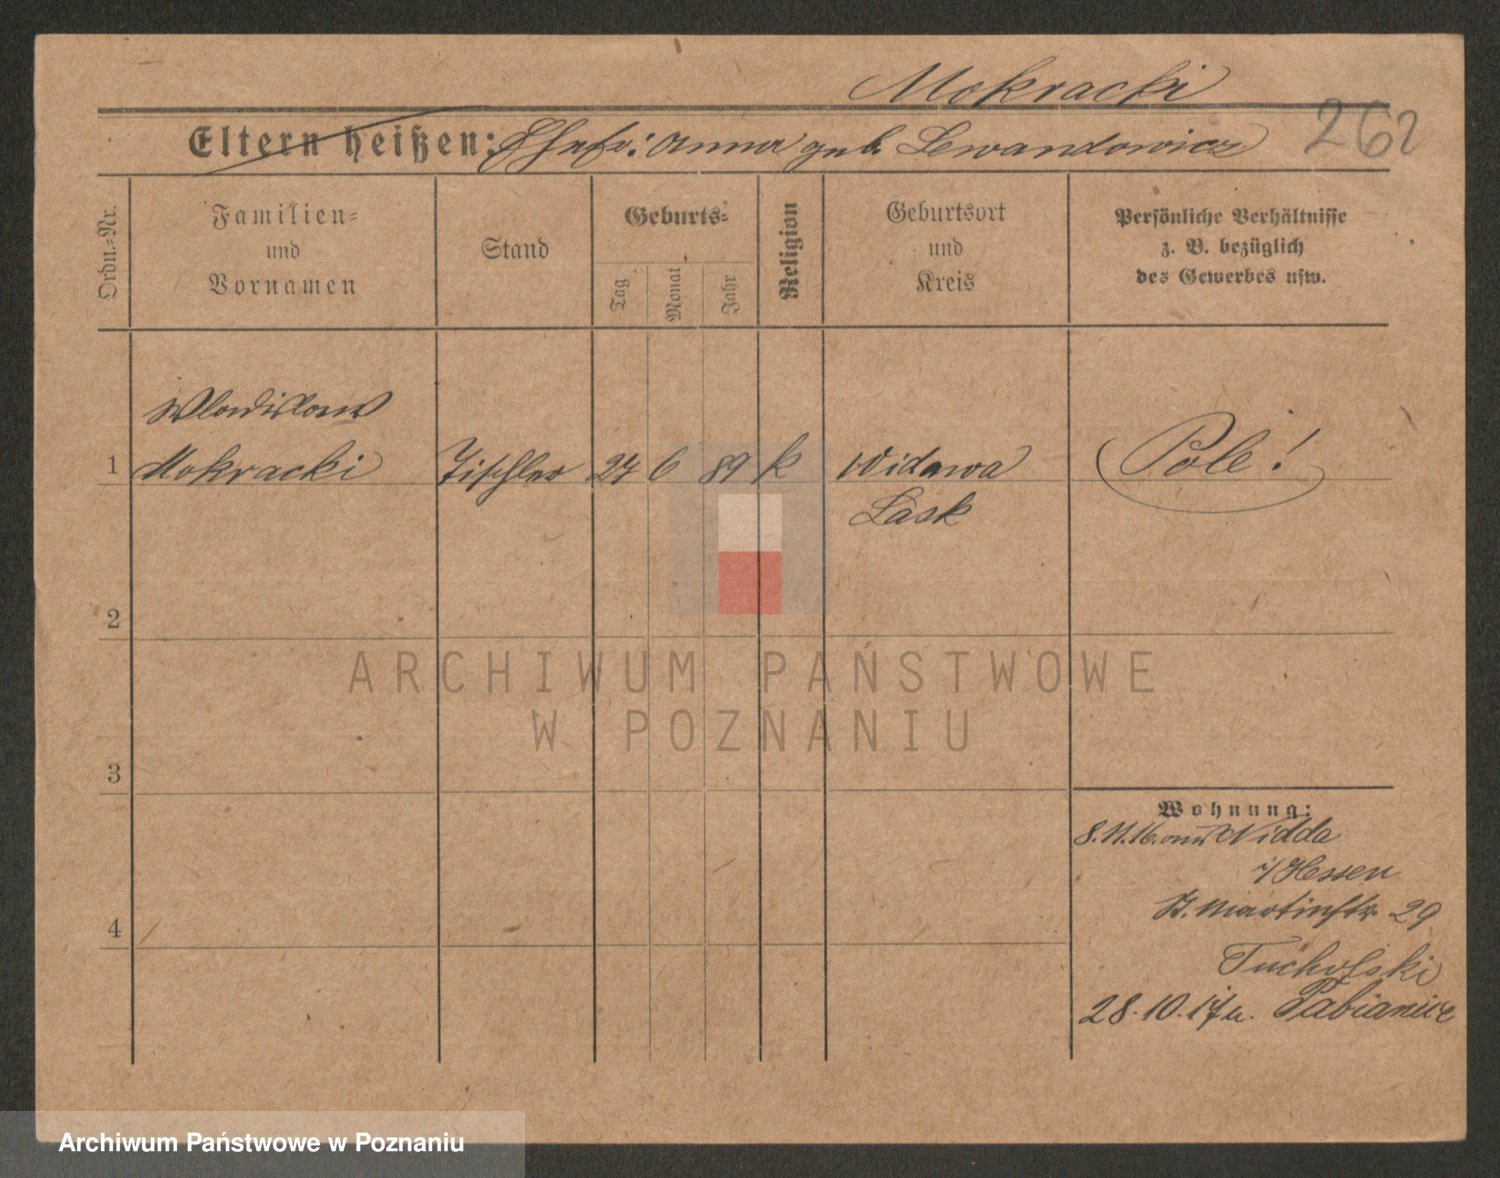 Mokracki
262
Eltern heißen: Ehefr: Anna geb. Lewandowicz
Ordn.=Nr.
Familien=
und
Vornamen
Stand
Geburts=
Tag
Monat
Jahr
Religion
Geburtsort
und
Kreis
Persönliche Verhältnisse
z. B. bezüglich
des Gewerbes usw.
Wladislaw
1 Mokracki Tischler 24 6 89 k Widawa Pole!
Lask
2
3
4
Wohnung:
8.11.16. aus Nidda
i/Hessen
St. Martinstr 29
Tucholski
28.10.17 n. Pabianice
ARCHIWUM PAŃSTWOWE
W POZNANIU
Archiwum Państwowe w Poznaniu